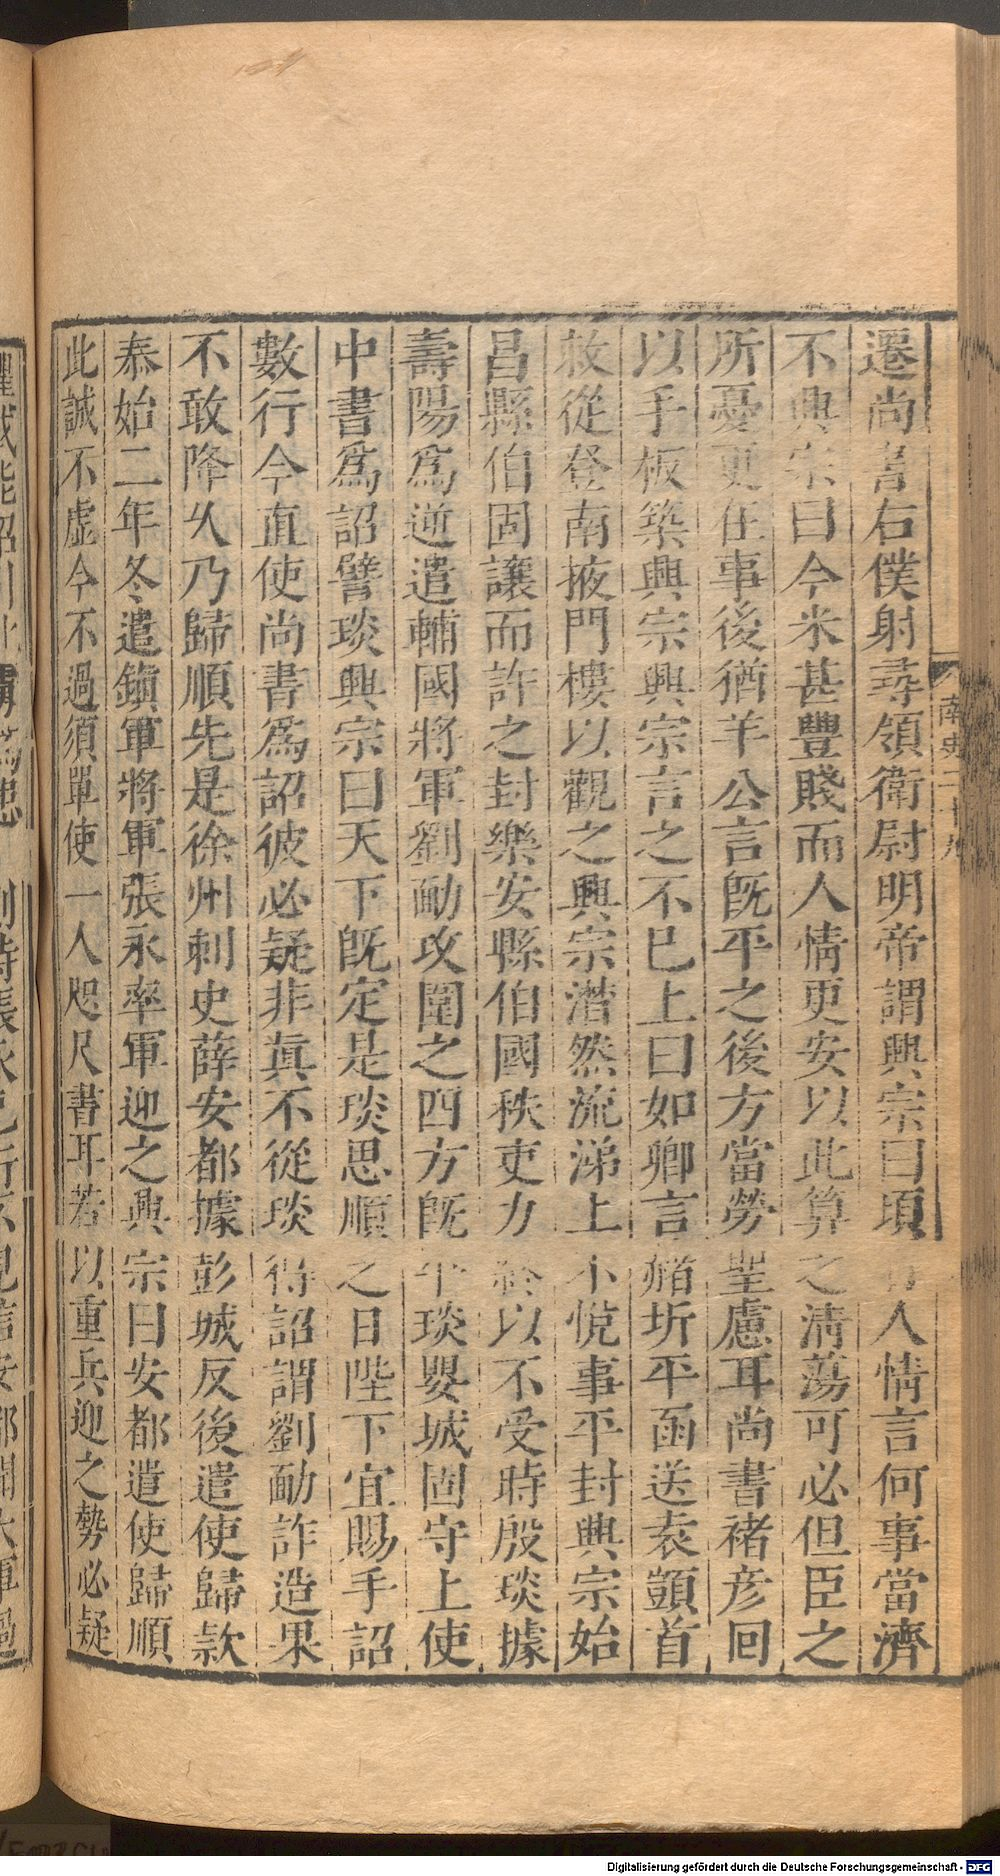 遷尚書右僕射尋領衛尉明帝謂興宗曰頃日人情言何事當濟
不興宗曰今米甚豐賤而人情更安以此算之清蕩可必但臣之
所憂更在事後猶羊公言既平之後方當勞聖慮耳尚書褚彦回
以手板築興宗興宗言之不已上曰如卿言赭圻平函送袁顗首
敕從登南掖門樓以觀之興宗潸然流涕上不悅事平封興宗始
昌縣伯固讓而許之封樂安縣伯國秩吏力終以不受時殷琰據
壽陽爲逆遣輔國將軍劉勔攻圍之四方既平琰嬰城固守上使
中書爲詔譬琰興宗曰天下既定是琰思順之日陛下宜賜手詔
數行今直使尚書爲詔彼必疑非眞不從琰得詔謂劉勔詐造果
不敢降乆乃歸順先是徐州刺史薛安都據彭城反後遣使歸款
泰始二年冬遣鎭軍將軍張永率軍迎之興宗曰安都遣使歸順
此誠不虛今不過須單使一人咫尺書耳若以重兵迎之勢必疑
南史二十九
Digitalisierung gefördert durch die Deutsche Forschungsgemeinschaft - DFG